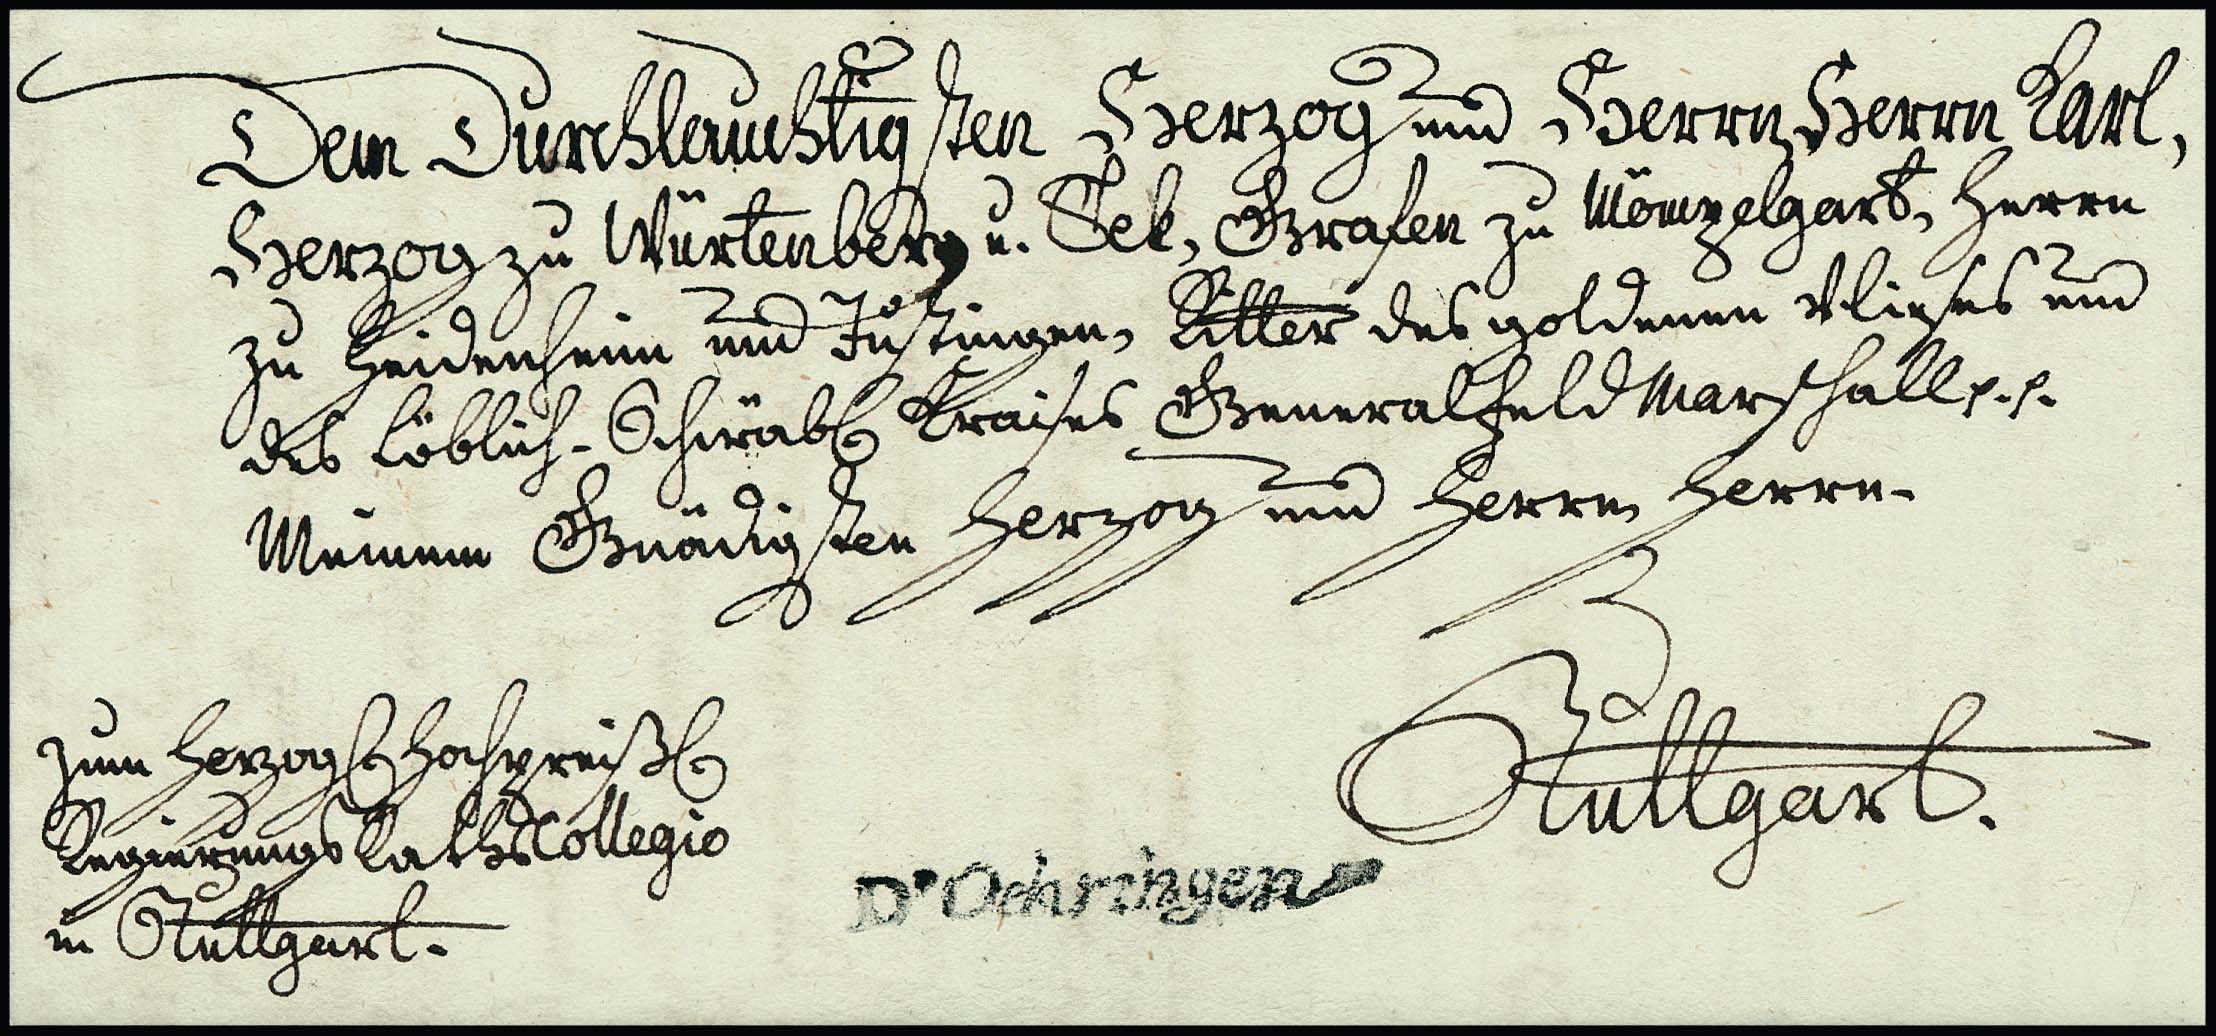 Dem Durchlauchtigsten Herzog und Herrn, Herrn Karl,
Herzog zu Würtenberg u. Tek, Grafen zu Mömpelgart, Herrn
zu Heidenheim und Justingen, Ritter des goldenen Vlieses und
des löblich-Schwäb. Kraises GeneralFeldMarschall p. p.
Meinem Gnädigsten Herzog und Herrn Herrn.
Stuttgart.
Zum Herzogl. Hochpreißl.
RegierungsRathsCollegio
in Stuttgart.
D'Oehringen